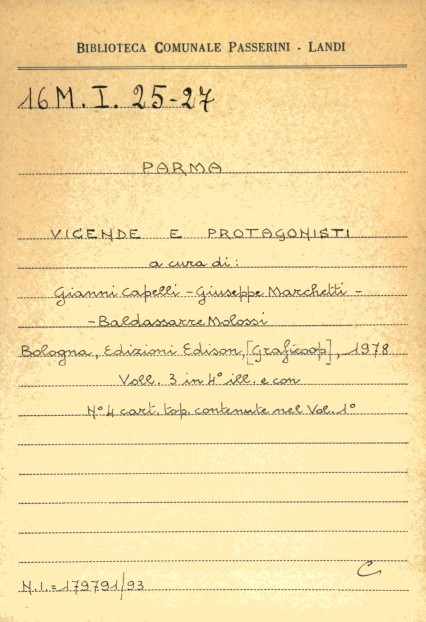 BIBLIOTECA COMUNALE PASSERINI - LANDI
16 M. I. 25-27
PARMA
VICENDE E PROTAGONISTI
a cura di:
Gianni Capelli - Giuseppe Marchetti -
- Baldassarre Molossi
Bologna, Edizioni Edison, [Graficoop], 1978
Voll. 3 in 4° ill. e con
N° 4 cart. top. contenute nel Vol. 1°
C
N.I. = 179791/93